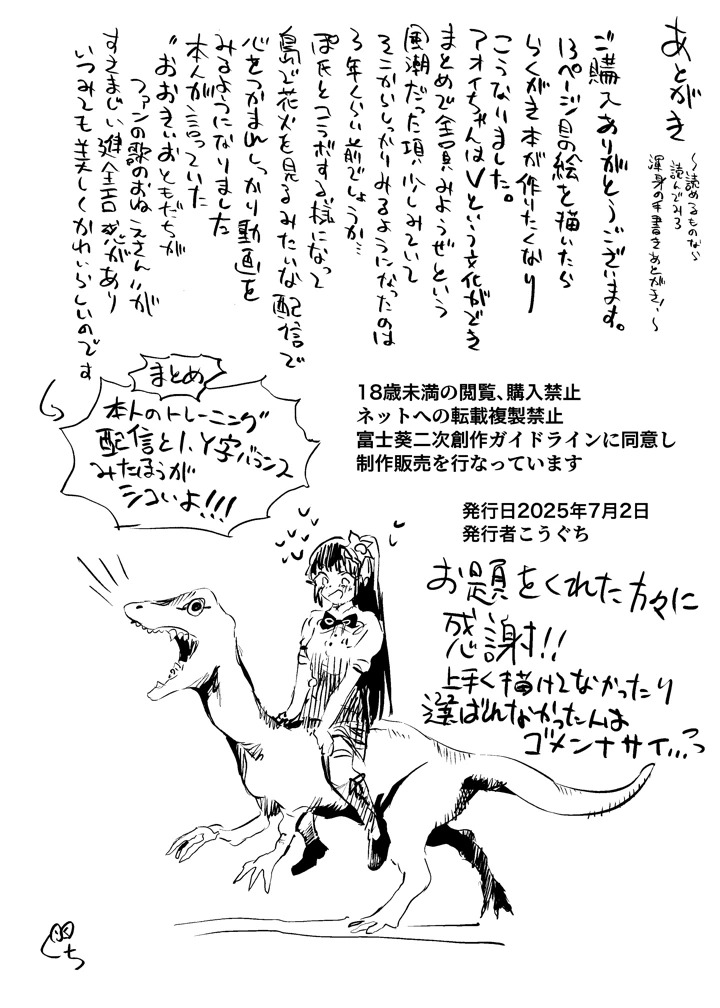 あとがき
〜読めるものなら
読んでみろ
渾身の手書きあとがき!〜
ご購入ありがとうございます。
13ページ目の絵を描いたら
らくがき本が作りたくなり
こうなりました。
アオイちゃんはVという文化ができ
まとめで全員みようぜという
風潮だった頃少しみていて
そこからしっかりみるようになったのは
3年くらい前でしょうか…
ぽ氏とコラボする様になって
島で花火を見るみたいな配信で
心をつかまれしっかり動画を
みるようになりました
本人が言っていた
"おおきいおともだちが
ファンの歌のおねえさん"が
すさまじい進全言感があり
いつみても美しくかわいらしいのです
まとめ
本人のトレーニング
配信とI、Y字バランス
みたほうが
シコいよ!!!
18歳未満の閲覧、購入禁止
ネットへの転載複製禁止
富士葵二次創作ガイドラインに同意し
制作販売を行なっています
発行日2025年7月2日
発行者こうぐち
お題をくれた方々に
感謝!!
上手く描けてなかったり
選ばれなかったんは
ゴメンナサイ...っ
ぐち